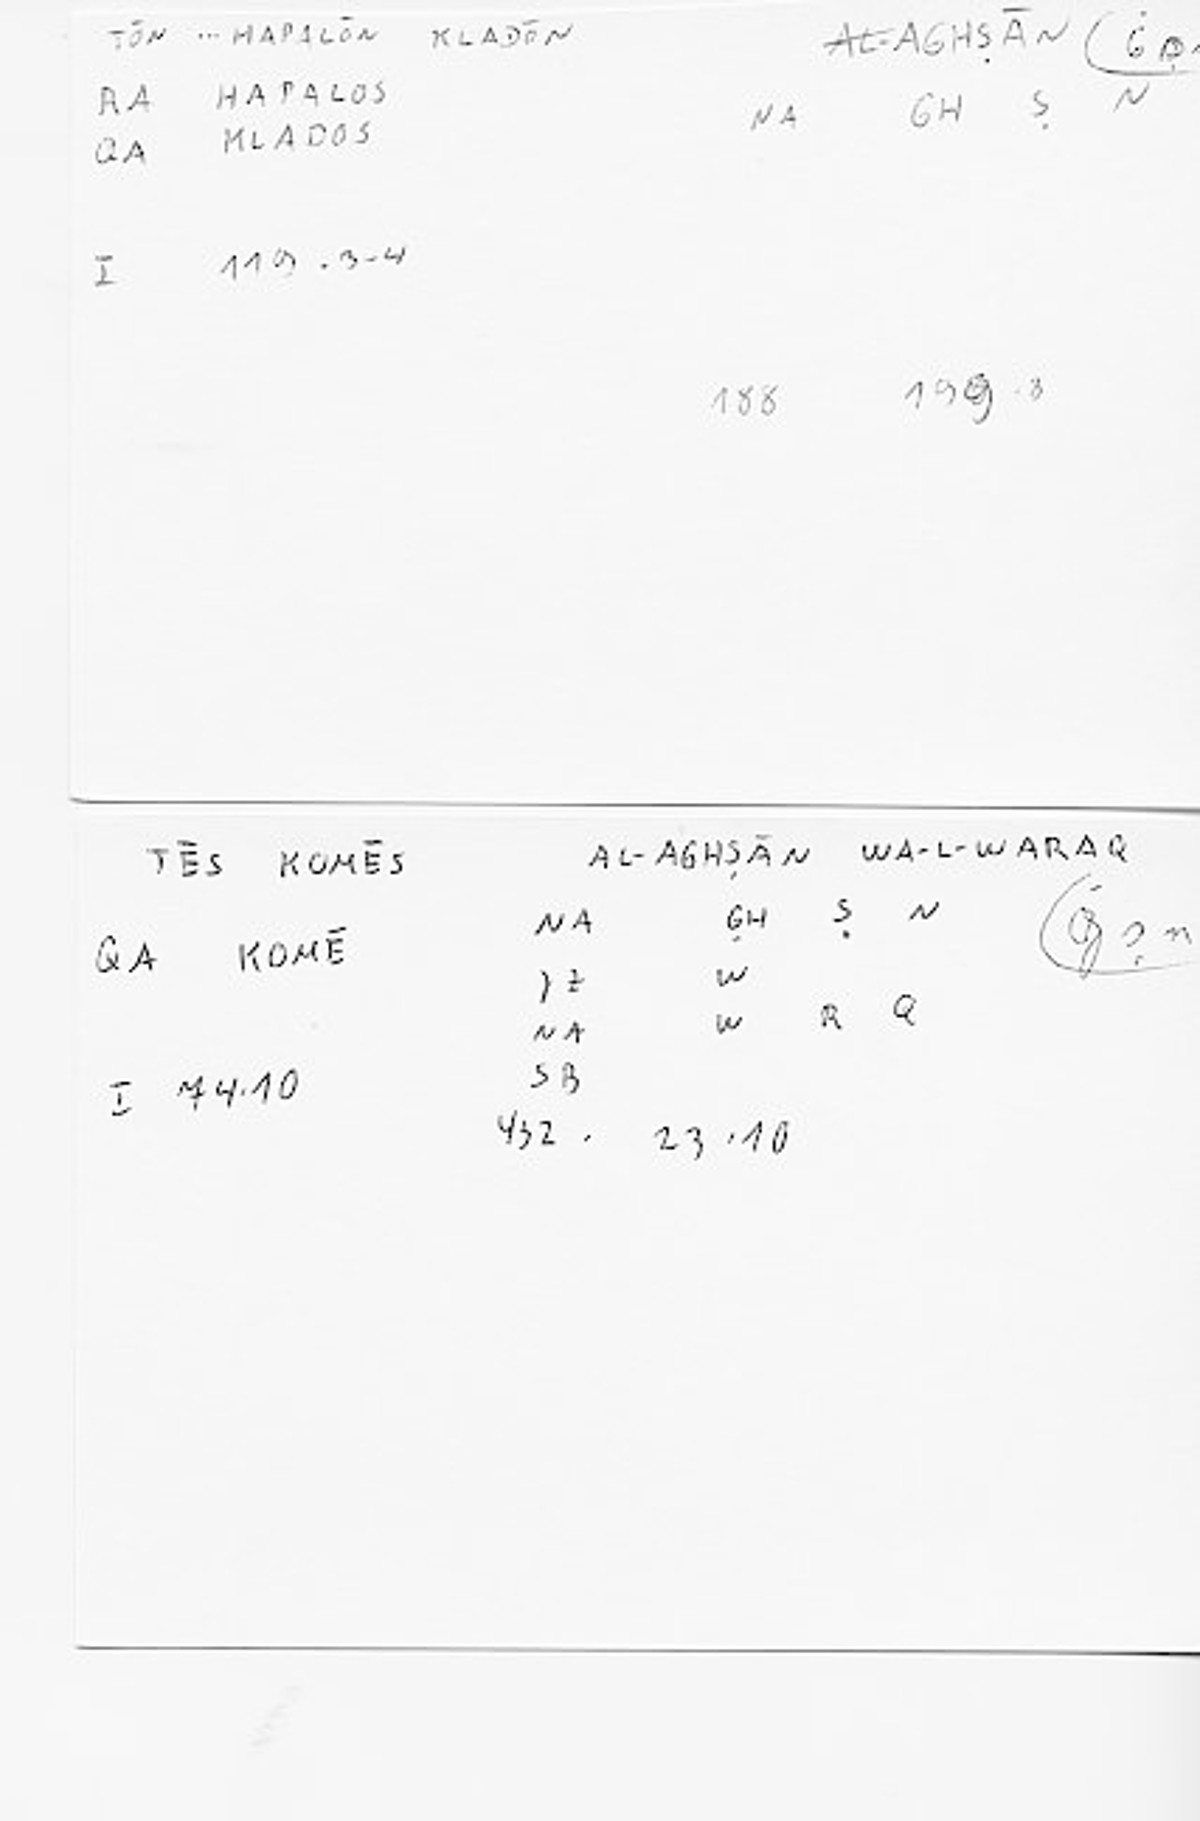 TŌN ... HAPALŌN KLADŌN AL-AGHṢĀN (ġṣn
RA HAPALOS
QA KLADOS NA GH Ṣ N
I 119.3-4
188 199.3
TĒS KOMĒS AL-AGHṢĀN WA-L-WARAQ
QA KOMĒ NA GH Ṣ N
W
NA W R Q
SB
I 74.10
432. 23.10